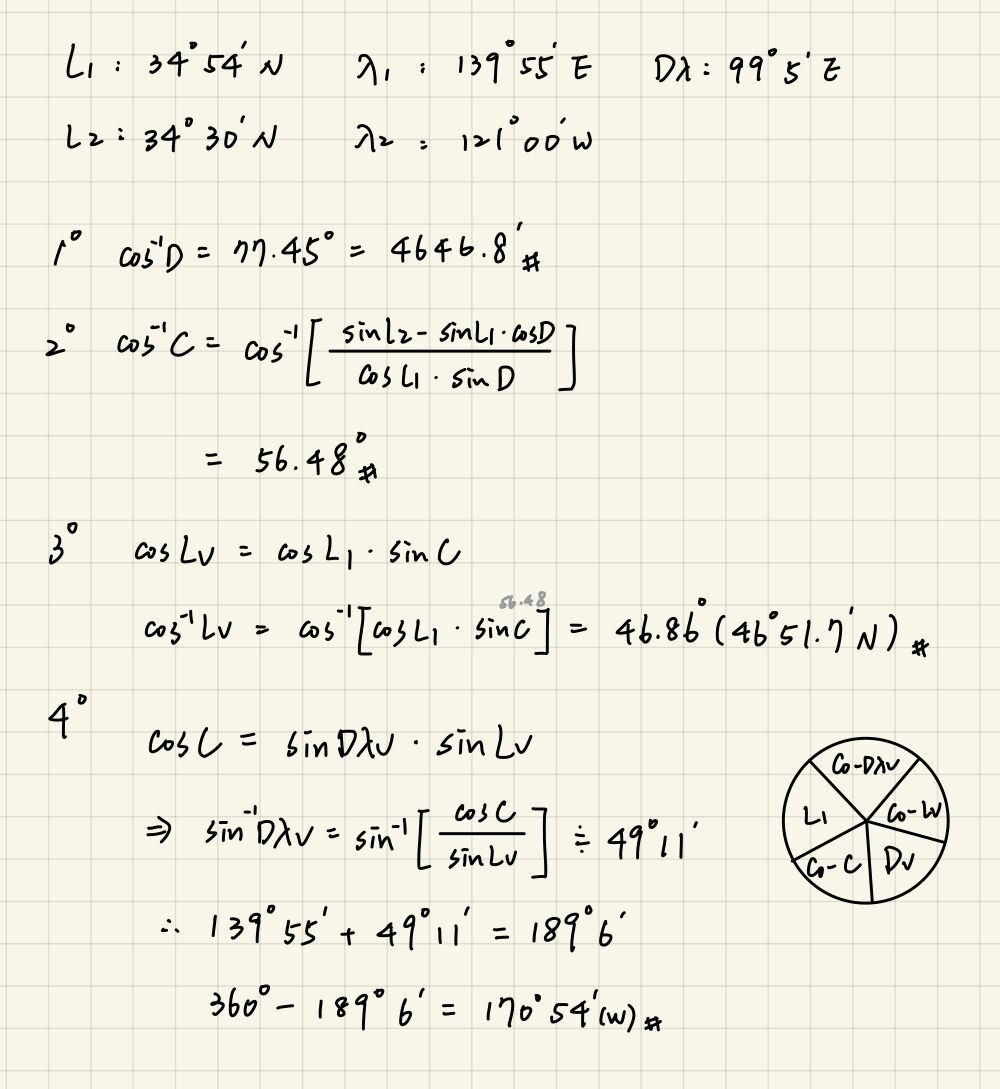 L1 : 34°54'N λ1 : 139°55'E Dλ : 99°5'E
L2 : 34°30'N λ2 : 121°00'W
1° cos⁻¹D = 77.45° = 4646.8' #
2° cos⁻¹C = cos⁻¹[ (sinL2 - sinL1·cosD) / (cosL1·sinD) ]
= 56.48° #
3° cosLv = cosL1·sinC
56.48
cos⁻¹Lv = cos⁻¹[cosL1·sinC] = 46.86° (46°51.7'N) #
4°
cosC = sinDλv·sinLv
⇒ sin⁻¹Dλv = sin⁻¹[ cosC / sinLv ] ≑ 49°11'
∴ 139°55' + 49°11' = 189°6'
360° - 189°6' = 170°54'(W) #
Co-Dλv
L1 Co-Lv
Co-C Dv